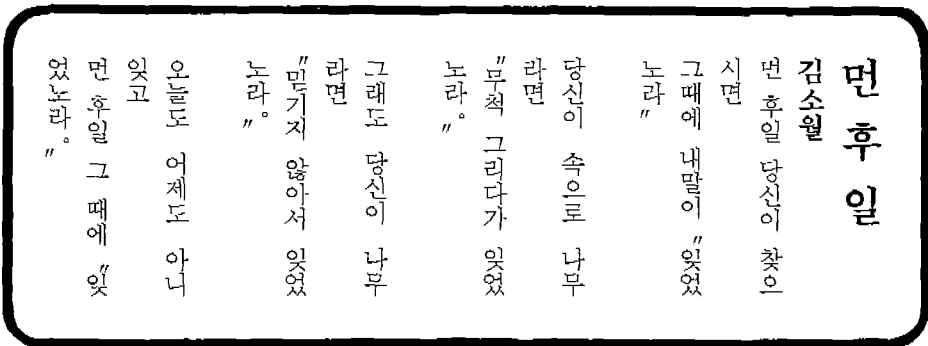 먼 후 일
김소월
먼 후일 당신이 찾으
시면
그때에 내말이 "잊었
노라"
당신이 속으로 나무
라면
"무척 그리다가 잊었
노라。"
그래도 당신이 나무
라면
"믿기지 않아서 잊었
노라。"
오늘도 어제도 아니
잊고
먼 후일 그 때에 "잊
었노라。"